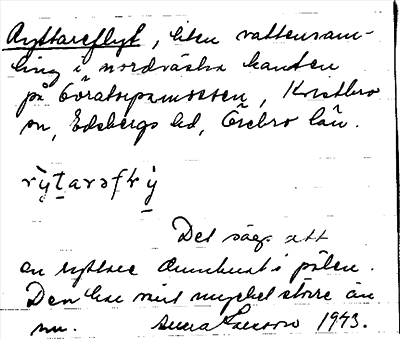 Ryttareflyt, liten vattensam-
ling i nordvästra kanten
på Goratorpamossen, Kvistbro
sn, Edsbergs hd, Örebro län.
Det säges att
en ryttare drunknat i pölen.
Den har varit mycket större än
nu. Larsson 1943.